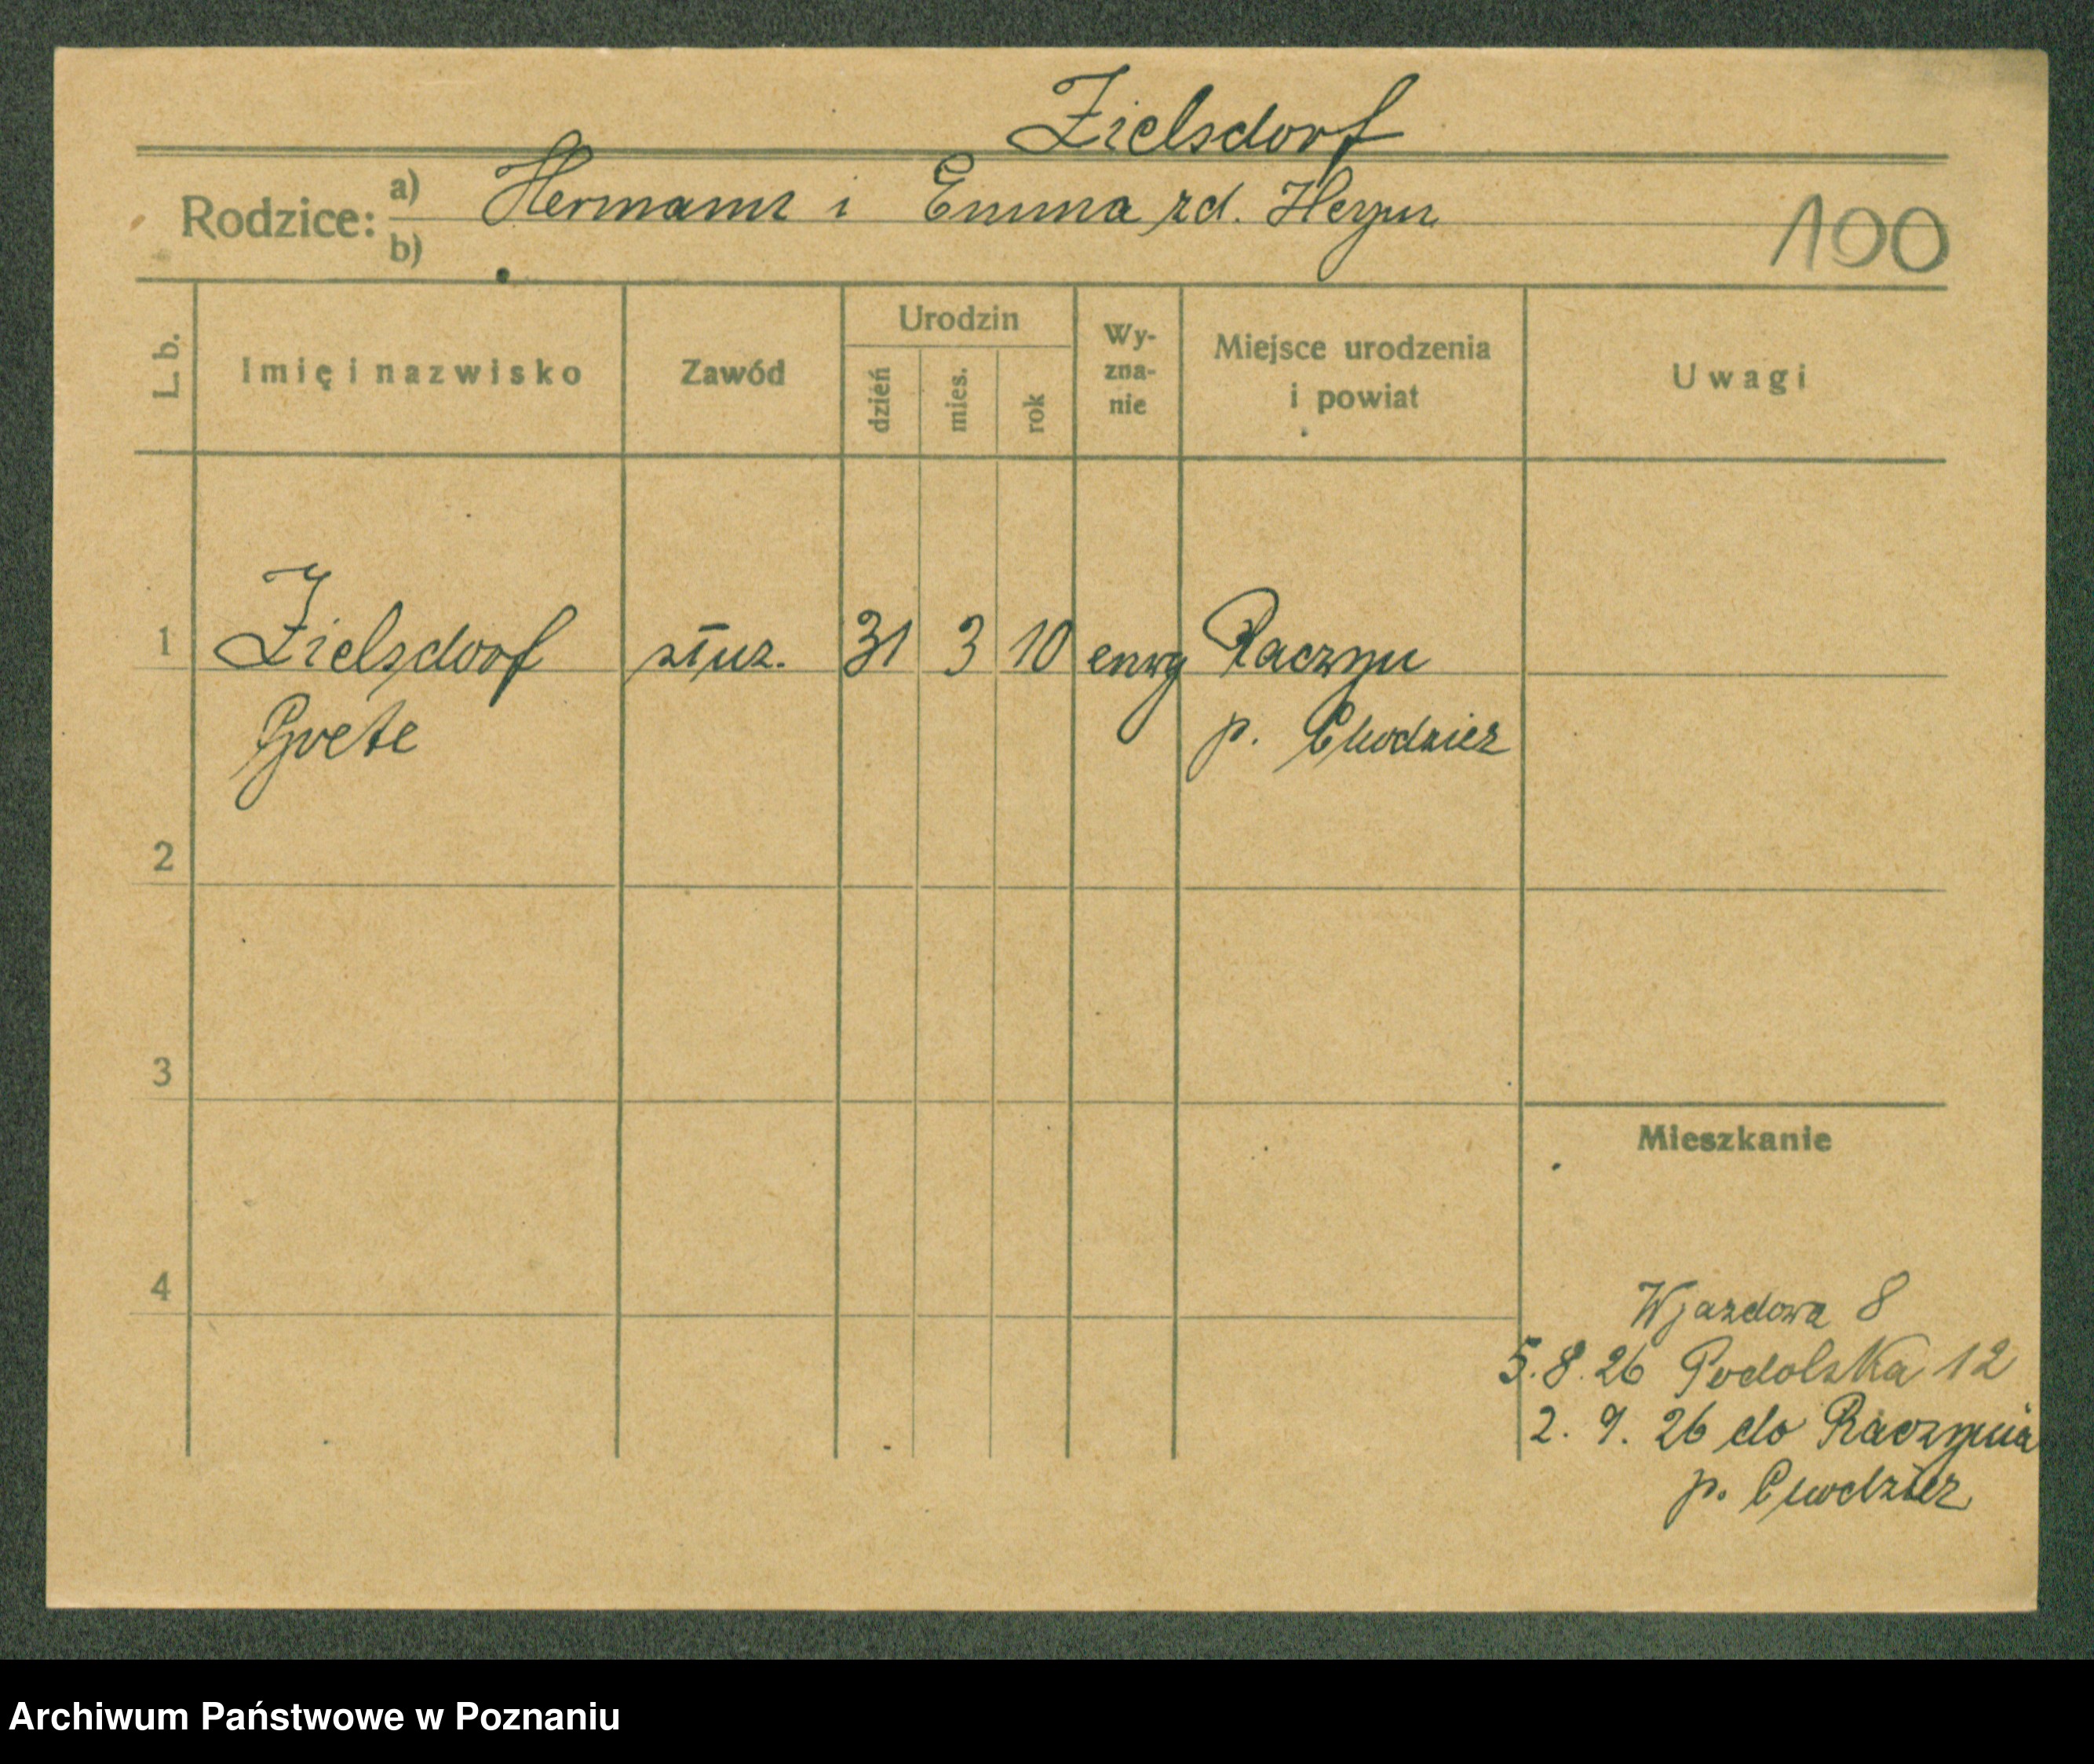 Zielsdorf
Rodzice: a) Hermann i Emma zd. Heyn
b)
100
L. b.
Imię i nazwisko
Zawód
Urodzin
dzień
mies.
rok
Wy-
zna-
nie
Miejsce urodzenia
i powiat
Uwagi
1 Zielsdorf służ. 31 3 10 ewg Raczyn
Grete p. Chodzież
2
3
Mieszkanie
4
Wjazdowa 8
5.8.26 Podolska 12
2. 9. 26 do Raczynia
p. Chodzież
Archiwum Państwowe w Poznaniu